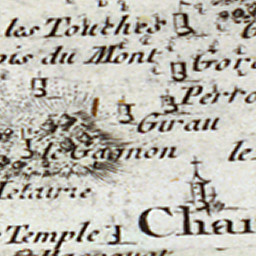 les Touches
ois du Mont
Gor
Perro
Girau
le Gagnon
le
Metairie
Char
Temple